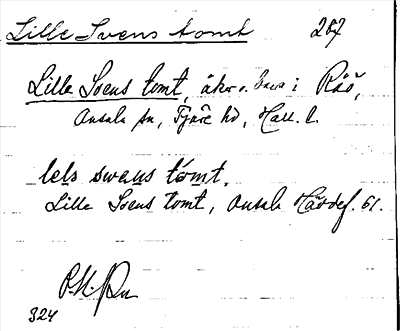 Lille Svens tomt 267
Lille Svens tomt, åker o. i Råö,
Onsala sn, Fjäre hd, Hall. l.
lels swens tomt.
Lille Svens tomt, Onsala Härdef. 61.
324